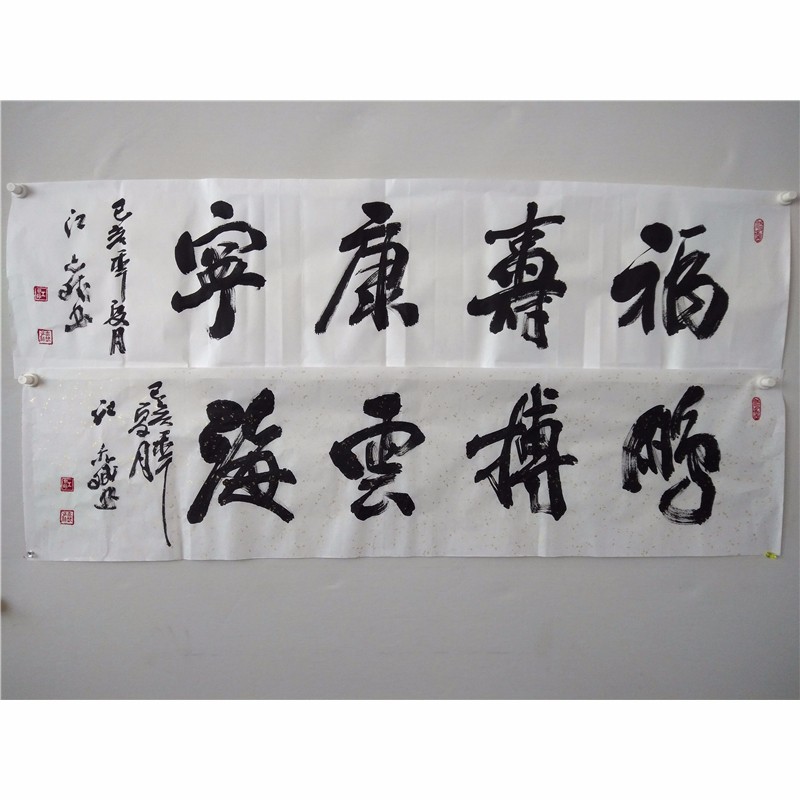 福壽康寧
己亥年夏月
江
鵬搏雲海
己亥年
夏月
江